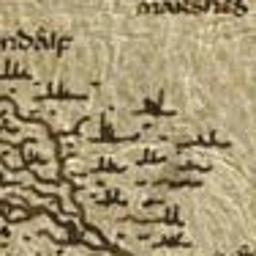 marshes
ndalf